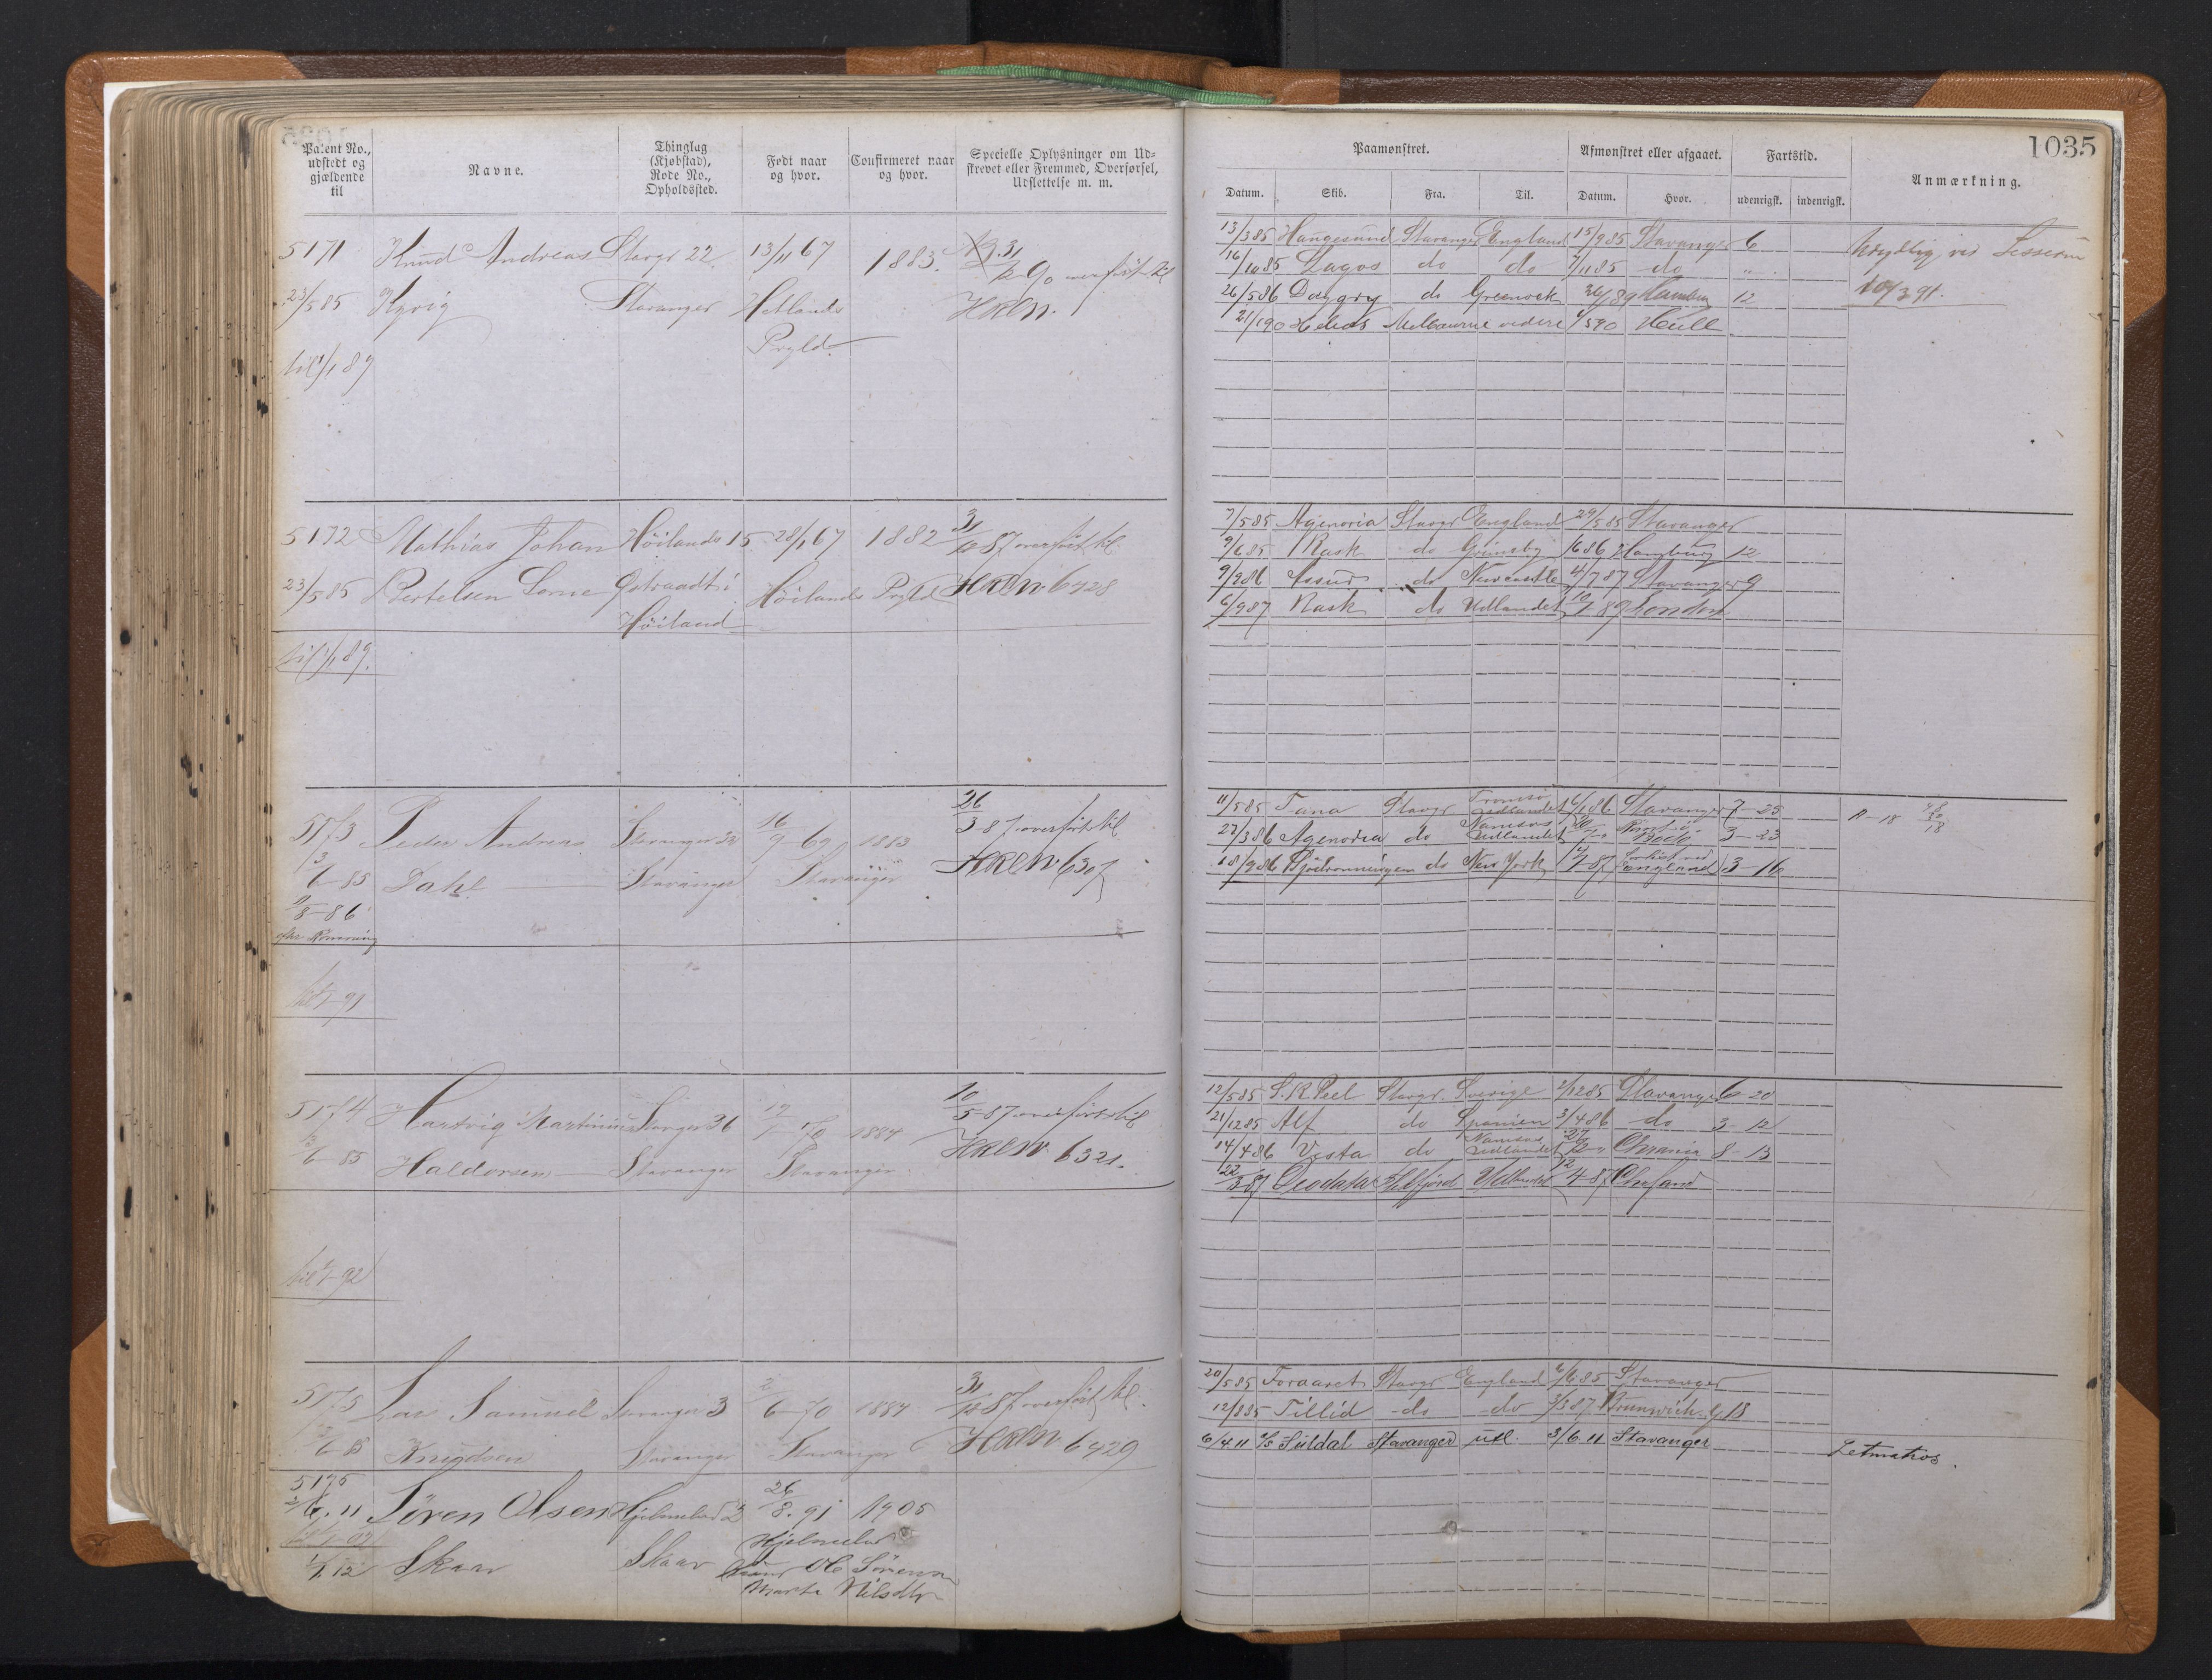 1035
Patent No., udstedt og gjældende til
Navne.
Thinglag (Kjøbstad), Rode No., Opholdssted.
Født naar og hvor.
Confirmeret naar og hvor.
Specielle Oplysninger om Udskrevet eller Fremmed, Overførsel, Udslettelse m. m.
Paamønstret.
Afmønstret eller afgaaet.
Fartstid.
Anmærkning.
Datum. Skib. Fra. Til. Datum. Hvor. udenrigsk. indenrigsk.
5171 Knud Andreas Stavgr 22. 13/11 67 1883. 31/12 90 overført til
23/5 85 Kyvig Stavanger Hetlands HRLN.
Prgld.
til 1/1 89
13/3 85 Haugesund Stavanger England 15/9 85 Stavanger 6
16/10 85 Lagos do do 7/11 85 do "
26/5 86 Daggry do Greenock 26/1 89 Hamburg 12
21/1 90 Helios Melbourne videre 1/5 90 Hull
10/3 91.
5172 Mathias Johan Höilands 15 28/1 67 1882 31/10 87 overført til
23/5 85 Bertelsen Høilands Prgld HRLN 6428
Höiland
til 1/1 89.
7/5 85 Agenoria Stavgr England 29/5 85 Stavanger
9/6 85 Rask do Grimsby 1/6 86 Hamburg 12
9/9 86 do Newcastle 4/7 87 Stavanger 9
6/9 87 Rask do Udlandet 10/7 89 London
5173 Peder Andreas Stavanger 32 16/9 69 1883 26/3 87 overført til
3/6 85 Dahl Stavanger Stavanger HRLN 6307
11/8 86
efter Rømning
til 1/1 91
11/5 85 Tana Stavgr Tromsø Udlandet 6/1 86 Stavanger 7-25
27/3 86 Agenoria do Namsos Udlandet Rømt i Bodö 3-23
18/9 86 Sjödronningen do New York 87 Forlist ved England 3-16
5174 Hartvig Martinius Stavger 36 1884 10/5 87 overført til
3/6 85 Haldorsen Stavanger Stavanger HRLN 6321.
til 1/1 92
12/5 85 S. R. Peel Stavgr. Sverige 2/12 85 Stavanger 6 20
21/12 85 Alf do Spanien 3/4 86 do 3-12
14/4 86 Vesta do Namsos Udlandet Chrania 8-13
22/3 87 Deodata Udlandet 12/4 87 Chrsand
5175 Lars Samuel Stavanger 3 2/6 70 1884 31/10 87 overført til
6 85 Knudsen Stavanger Stavanger HRLN 6429
20/5 85 Foraaret Stavgr England 6/6 85 Stavanger
12/8 85 Tillid do do 3/5 87 Brunswick
6/4 11 D/S Suldal Stavanger udl. 3/6 11 Stavanger
Letmatros.
5175
2/6. 11 Sören Olsen Hjelmeland 2 26/8. 91 1905
1/1 12 Skaar Skaar Hjelmeland
Ole Sörensen
Marta Nilsdtr